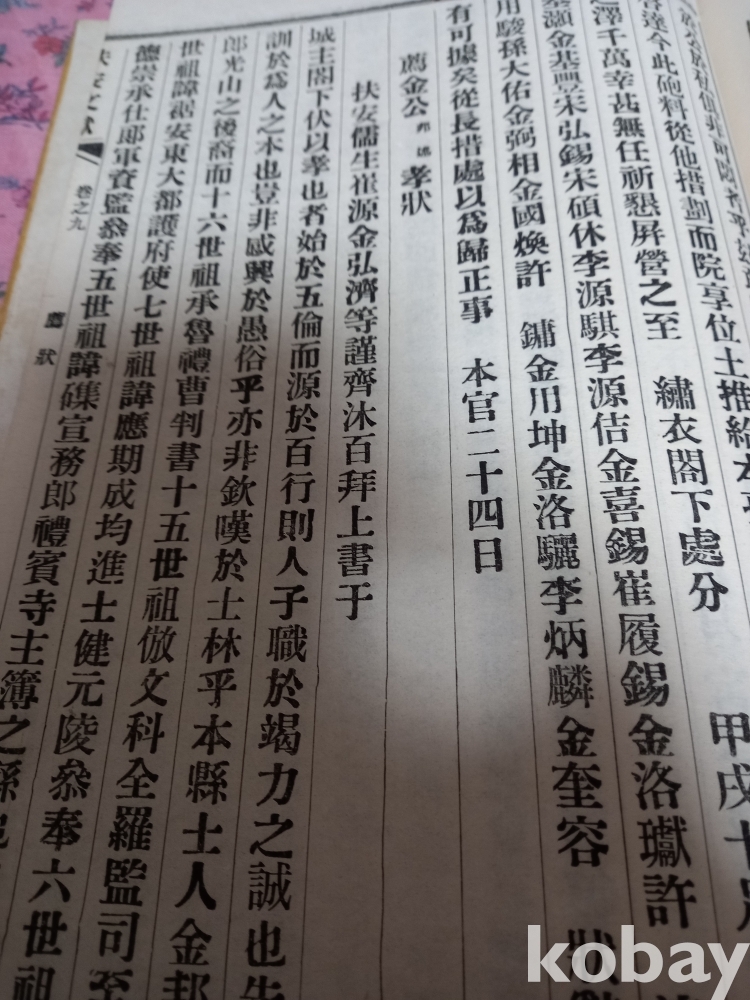 甲戌十月
繡衣閣下處分
答達今此砲料從他措劃而院享位土推給本
之澤千萬幸甚無任祈懇屏營之至
泰灝金基豐宋弘錫宋碩休李源騏李源佶金喜錫崔履錫金洛瓛許
用駿孫大佑金弼相金國煥許 鏞金用坤金洛驪李炳麟金奎容 狀
有可據矣從長措處以爲歸正事 本官二十四日
薦金公邦德孝狀
扶安儒生崔源金弘濟等謹齊沐百拜上書于
城主閣下伏以孝也者始於五倫而源於百行則人子職於竭力之誠也
訓於爲人之本也豈非感興於愚俗乎亦非欽嘆於士林乎本縣士人金邦
郞光山之後裔而十六世祖承魯禮曹判書十五世祖倣文科全羅監司至
世祖諱琚安東大都護府使七世祖諱應期成均進士健元陵叅奉六世祖
德崇承仕郞軍資監叅奉五世祖諱磼宣務郞禮賓寺主簿之孫也
扶安文獻 卷之九 薦狀
kobay